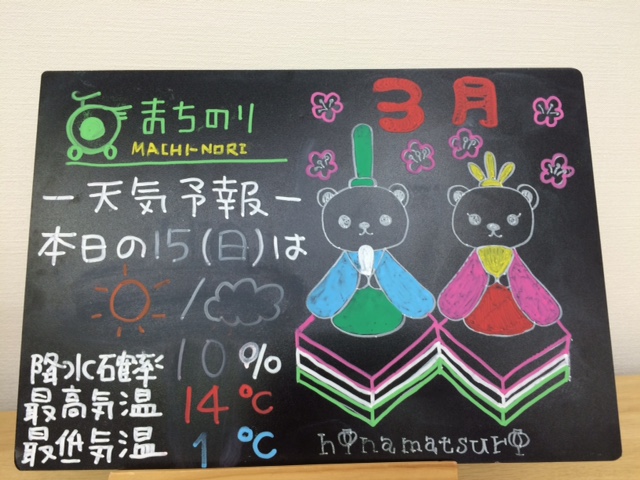 まちのり
MACHI-NORI
3月
－天気予報－
本日の15(日)は
/
降水確率 10%
最高気温 14℃
最低気温 1℃
hinamatsuri